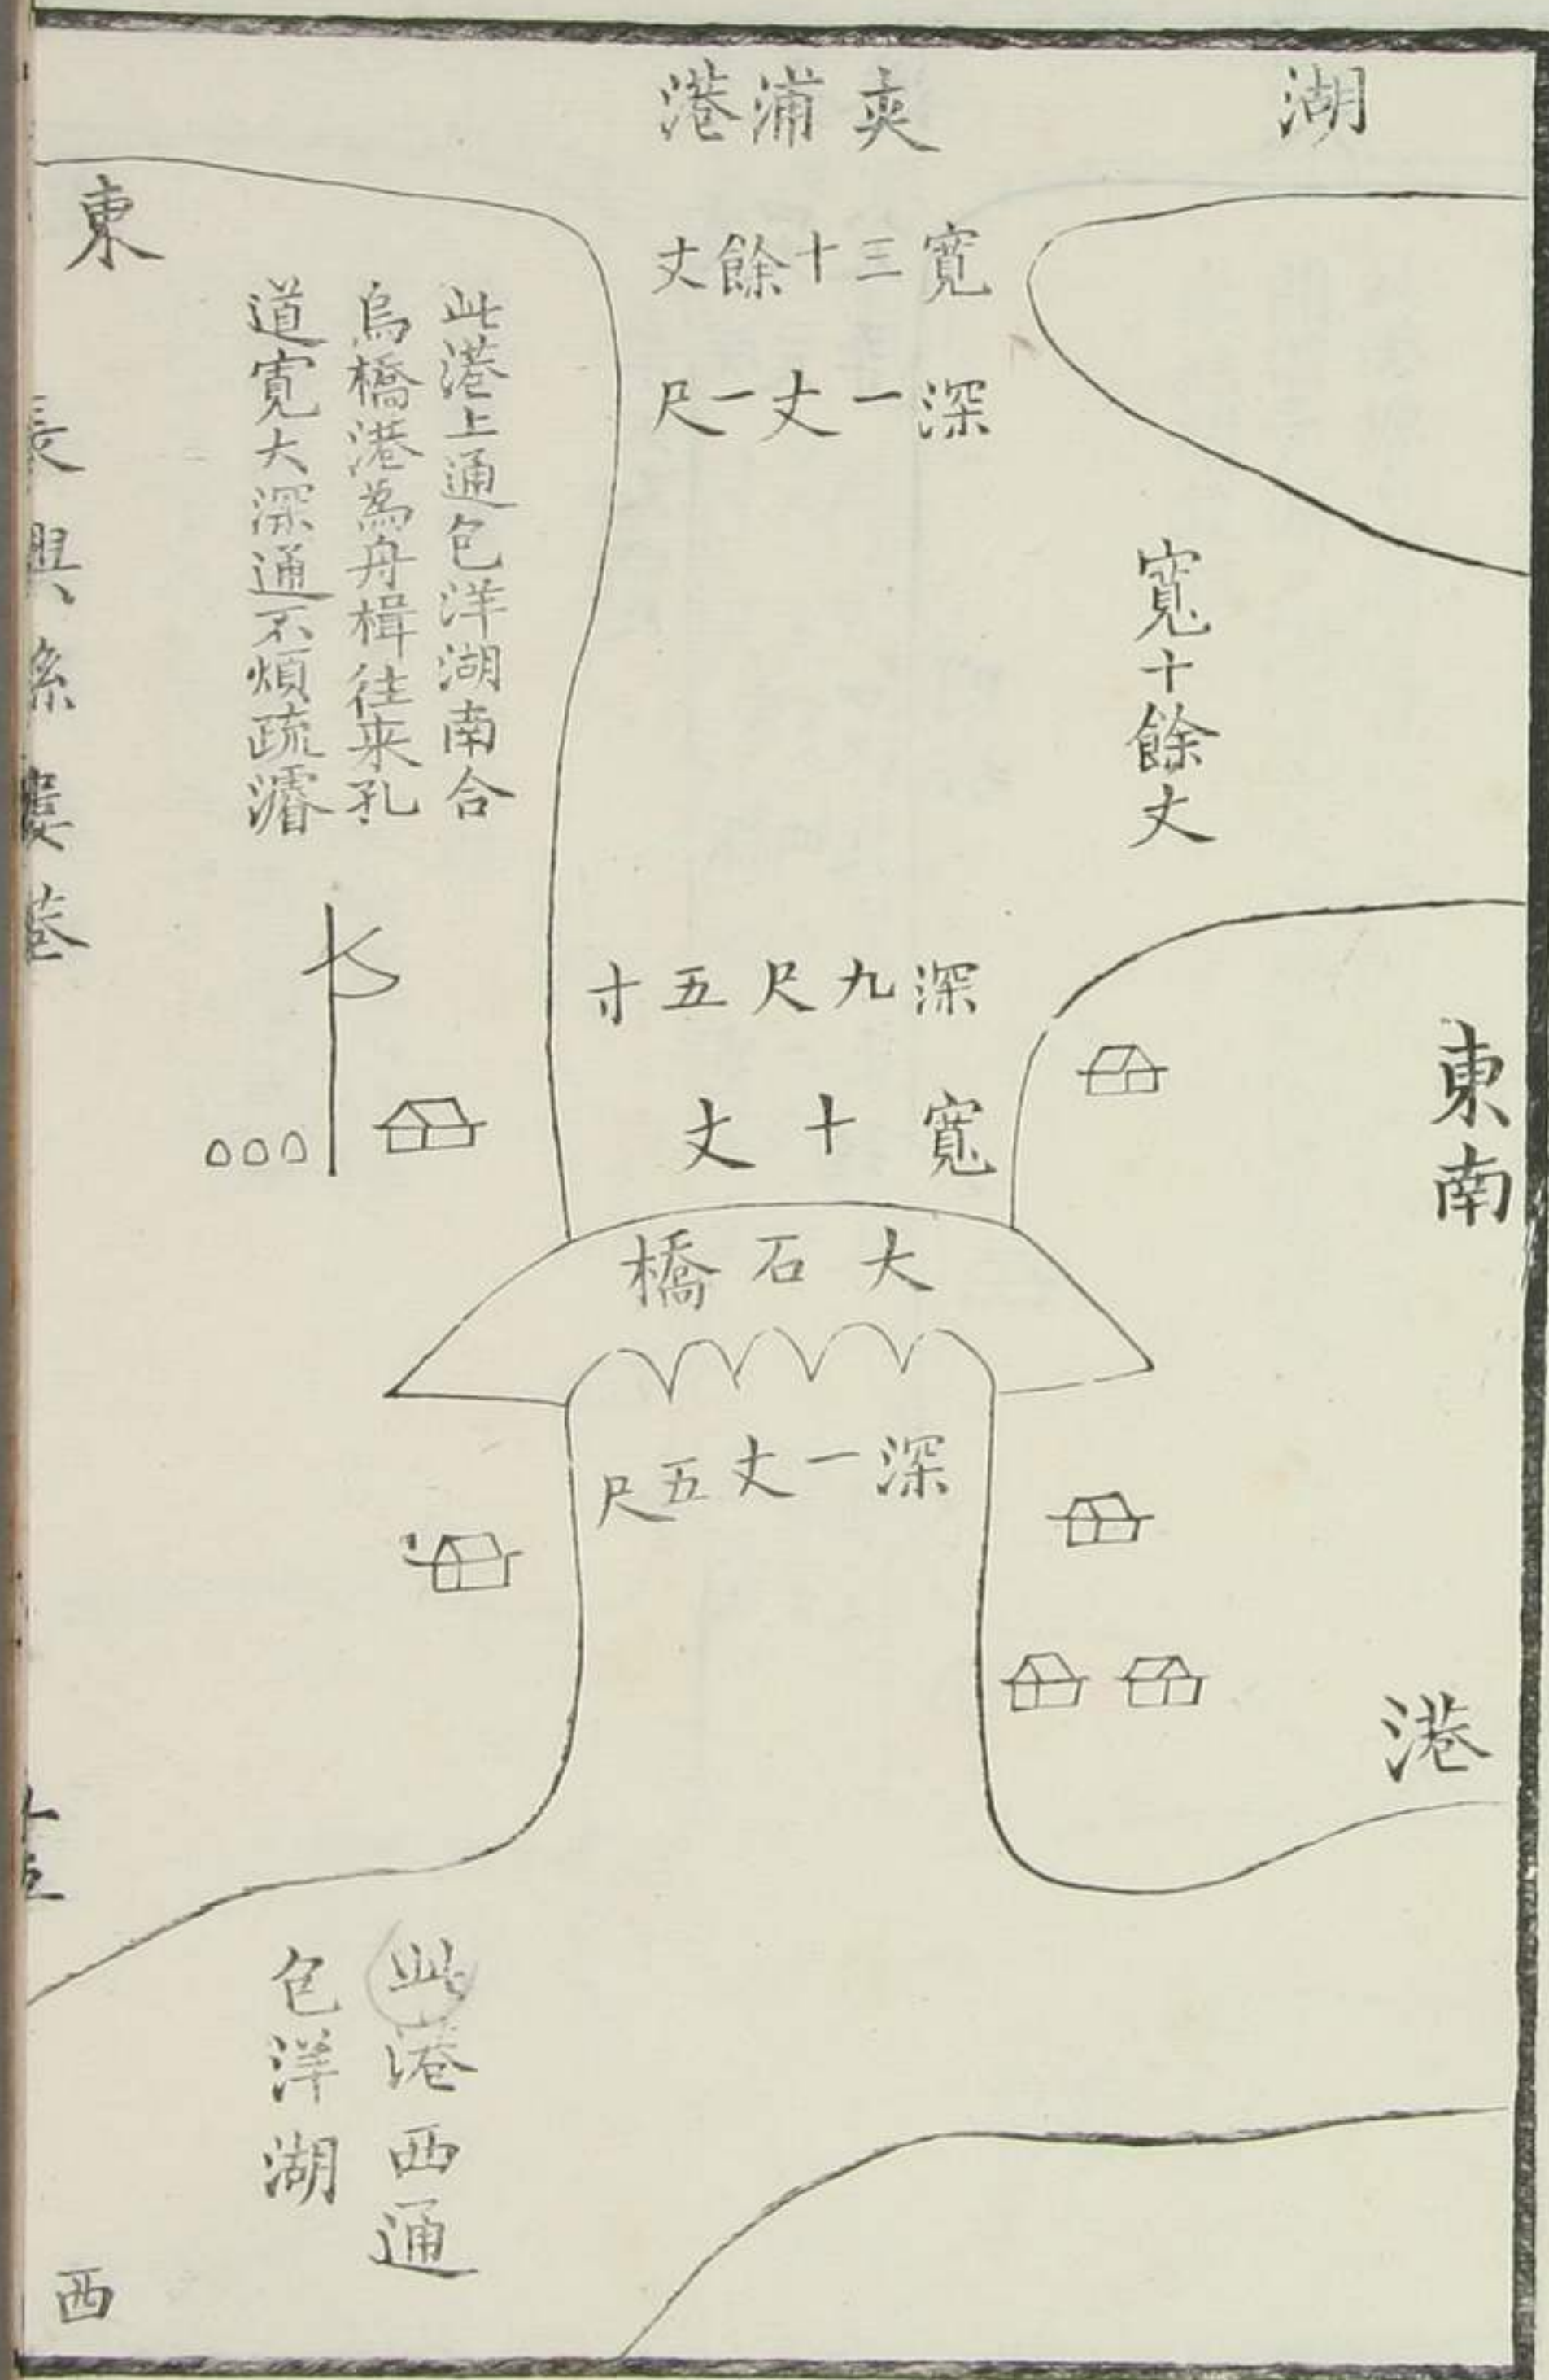 湖
夾浦港
寬三十餘丈
深一丈一尺
寬十餘丈
東
此港上通包洋湖南合
烏橋港為舟楫往来孔
道寬大深通不煩疏濬
深九尺五寸
寬十丈
東南
大石橋
深一丈五尺
港
此港西通
包洋湖
西
長興縣漊港
十五